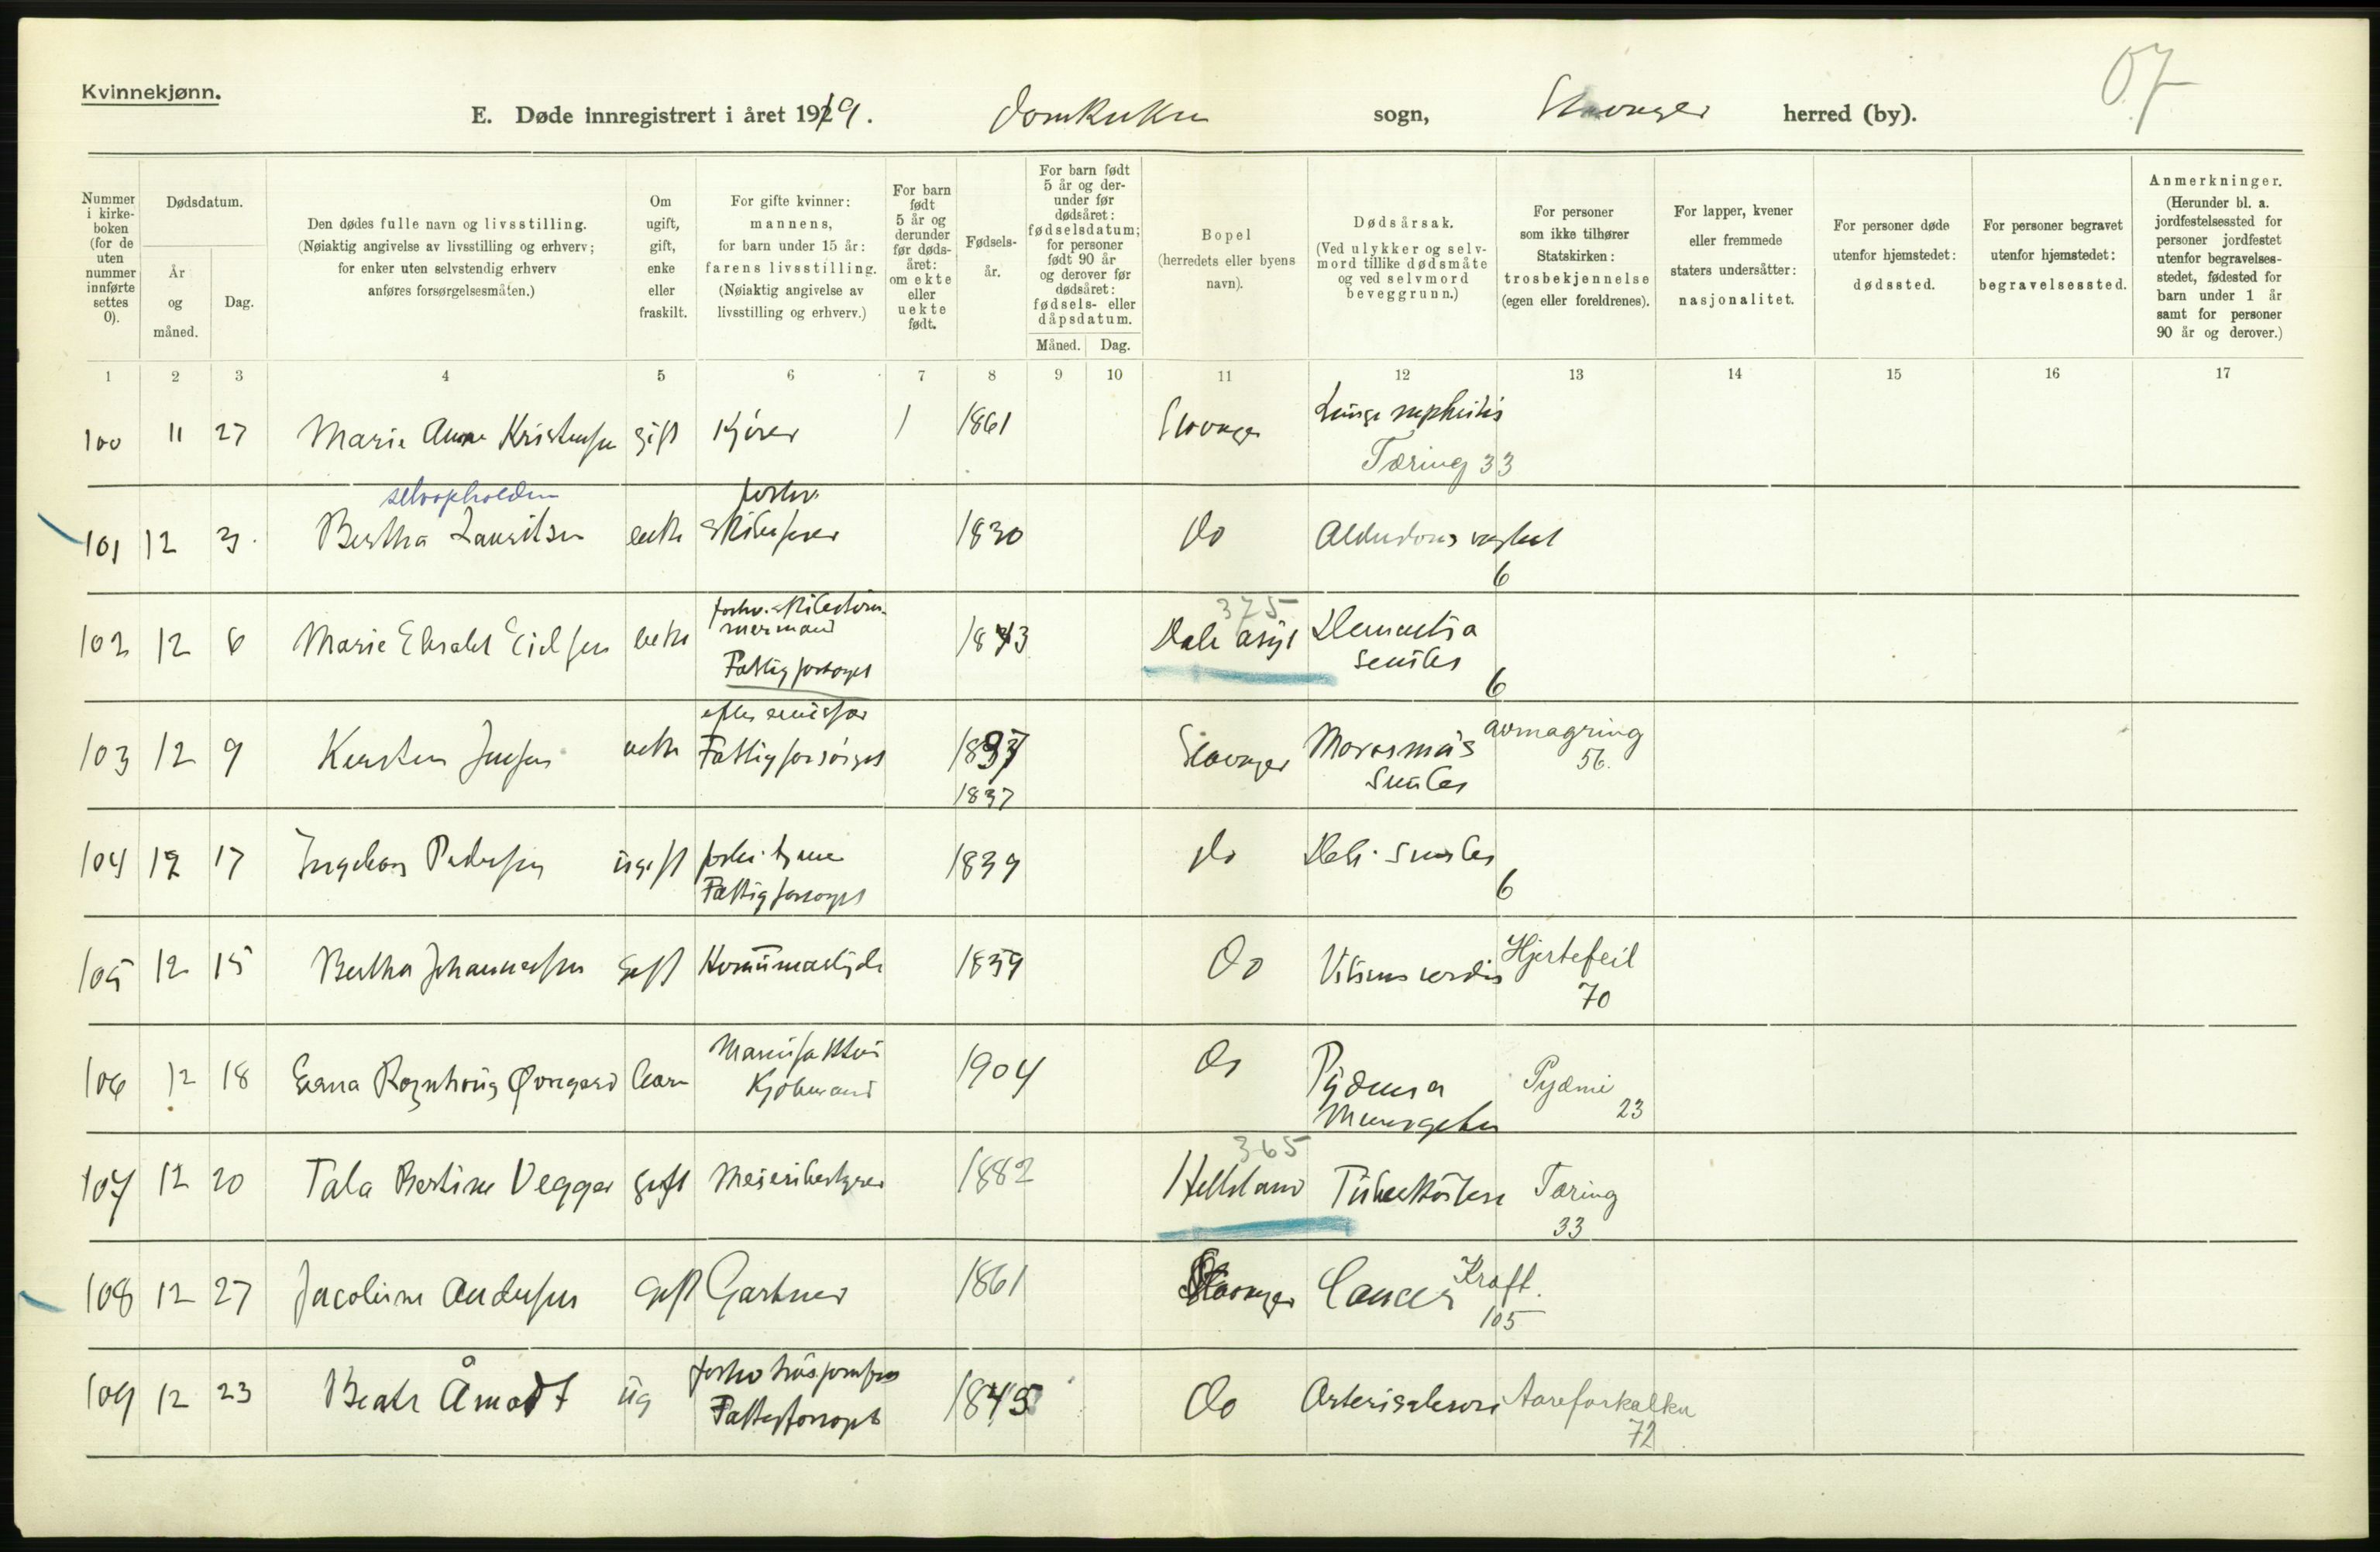 Kvinnekjønn.
E. Døde innregistrert i året 1919. Domkirken sogn, Stavanger herred (by).
07
Nummer i kirke-boken (for de uten nummer innførte settes 0).
Dødsdatum.
År og måned.
Dag.
Den dødes fulle navn og livsstilling.
(Nøiaktig angivelse av livsstilling og erhverv; for enker uten selvstendig erhverv anføres forsørgelsesmåten.)
Om ugift, gift, enke eller fraskilt.
For gifte kvinner: mannens, for barn under 15 år: farens livsstilling. (Nøiaktig angivelse av livsstilling og erhverv.)
For barn født 5 år og derunder før døds-året: om ekte eller uekte født.
Fødsels-år.
For barn født 5 år og der-under før dødsåret: fødselsdatum; for personer født 90 år og derover før dødsåret: fødsels- eller dåpsdatum.
Måned. Dag.
Bopel (herredets eller byens navn).
Dødsårsak. (Ved ulykker og selv-mord tillike dødsmåte og ved selvmord beveggrunn.)
For personer som ikke tilhører Statskirken: trosbekjennelse (egen eller foreldrenes).
For lapper, kvener eller fremmede staters undersåtter: nasjonalitet.
For personer døde utenfor hjemstedet: dødssted.
For personer begravet utenfor hjemstedet: begravelsessted.
Anmerkninger. (Herunder bl. a. jordfestelsessted for personer jordfestet utenfor begravelses-stedet, fødested for barn under 1 år samt for personer 90 år og derover.)
1 2 3 4 5 6 7 8 9 10 11 12 13 14 15 16 17
100 11 27 Marie Anne Kristensen gift Kjører 1861 Stavanger
Tæring 33
selvopholden
101 12 3 Bertha Lauritsen enke forhv. 1830 do Alderdomssvaghet
6
102 12 6 Marie Elisabet Eielsen enke 1843 375 Dale asyl Dementia senilis
Fattigforsørget
6
103 12 9 Kirsten Jensen enke Fattigforsørget 1837 Stavanger Marasmus senilis avmagring 56.
1837
104 12 17 Ingeborg Pedersen ugift 1839 do Deb. senilis
Fattigforsørget
6
105 12 15 Bertha Johannessen gift 1859 Do Vitium cordis Hjertefeil
70
106 12 18 Erna Ragnhoug Øvregaard barn Manufaktur Kjøbmand 1904 Do Pyæmia Pyæmi
23
107 12 20 Tala Bertine Vegger gift Meieribestyrer 1882 365 Hetland Tuberkulose Tæring
33
108 12 27 Jacobine Andersen gift Gartner 1861 Stavanger Cancer Kræft.
105
109 12 23 Beate Åmodt ug forhv husjomfru 1845 Do Arteriosclerose Aareforkalkn
Fattigforsørget
72